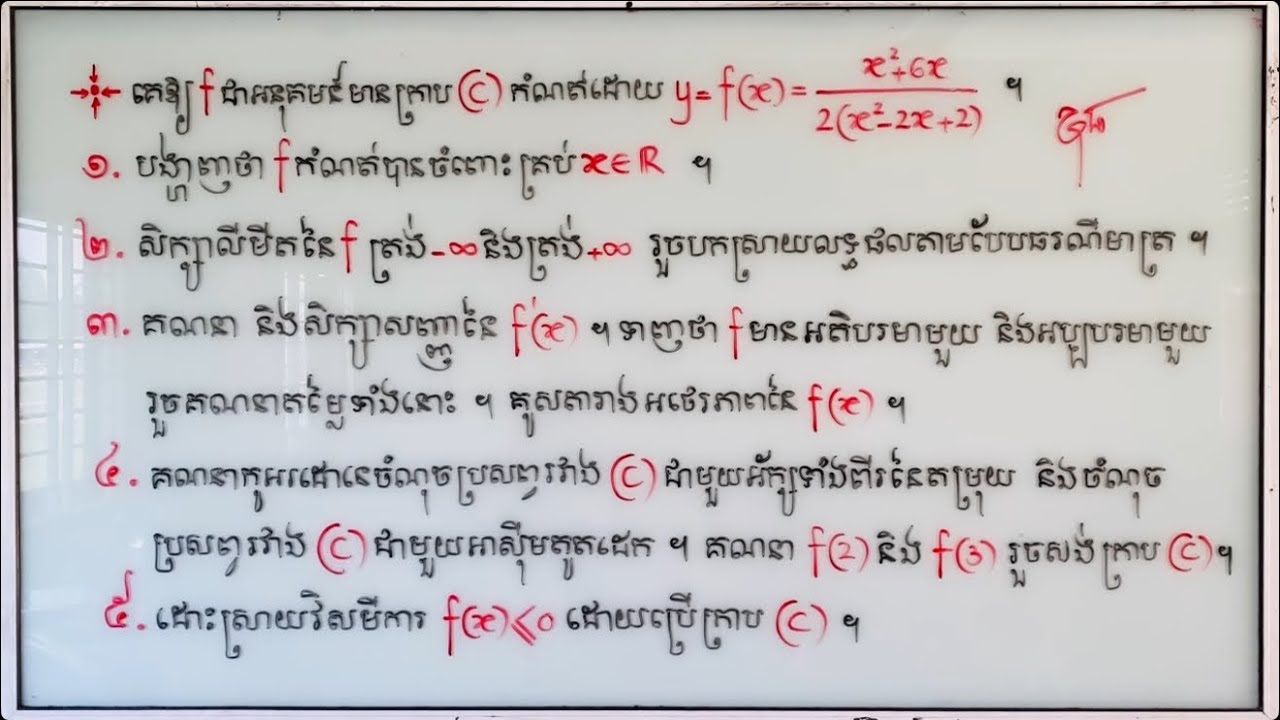 គេឱ្យ f ជាអនុគមន៍មានក្រាប (C) កំណត់ដោយ y = f(x) = (x²+6x)/(2(x²-2x+2)) ។
១. បង្ហាញថា f កំណត់បានចំពោះគ្រប់ x∈ℝ ។
២. សិក្សាលីមីតនៃ f ត្រង់ -∞ និងត្រង់ +∞ រួចបកស្រាយលទ្ធផលតាមបែបធរណីមាត្រ ។
៣. គណនា និងសិក្សាសញ្ញានៃ f'(x) ។ ទាញថា f មានអតិបរមាមួយ និងអប្បបរមាមួយ
រួចគណនាតម្លៃទាំងនោះ ។ គូសតារាងអថេរភាពនៃ f(x) ។
៤. គណនាកូអរដោនេចំណុចប្រសព្វរវាង (C) ជាមួយអ័ក្សទាំងពីរនៃតម្រុយ និងចំណុច
ប្រសព្វរវាង (C) ជាមួយអាស៊ីមតូតដេក ។ គណនា f(2) និង f(3) រួចសង់ក្រាប (C) ។
៥. ដោះស្រាយវិសមីការ f(x) ⩽ 0 ដោយប្រើក្រាប (C) ។